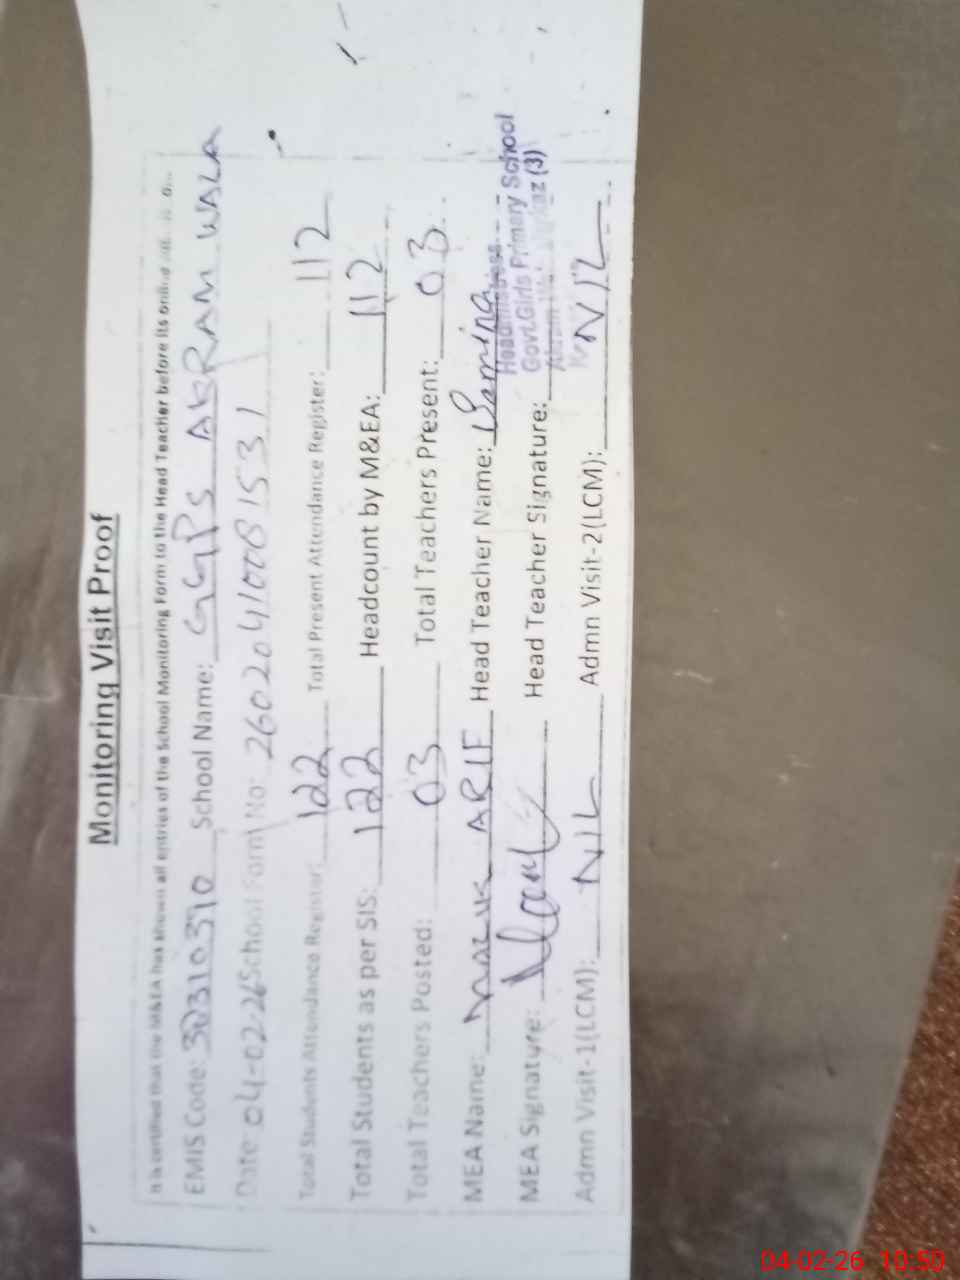 Monitoring Visit Proof
It is certified that the M&EA has shown all entries of the School Monitoring Form to the Head Teacher before its online
EMIS Code: 30310370 School Name: GGPS AKRAM WALA
Date: 04-02-26 School Form No: 26020410081531
Total Students Attendance Register: 122 Total Present Attendance Register: 112
Total Students as per SIS: 122 Headcount by M&EA: 112
Total Teachers Posted: 03 Total Teachers Present: 03
MEA Name: MALIK ARIF Head Teacher Name: Samina
Headmistress
Govt.Girls Primary School
MEA Signature: Head Teacher Signature:
(3)
Admn Visit-1(LCM): NIL Admn Visit-2(LCM): NIL
04-02-26 10:50